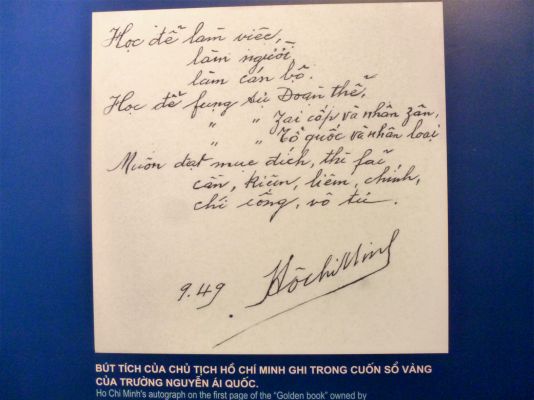 Học để làm việc,
làm người,
làm cán bộ.
Học để fụng sự Đoàn thể,
" " zai cấp và nhân zân,
" " Tổ quốc và nhân loại
Muốn đạt mục đích, thì fải
cần, kiệm, liêm, chính,
chí công, vô tư.
9.49 HồchíMinh
BÚT TÍCH CỦA CHỦ TỊCH HỒ CHÍ MINH GHI TRONG CUỐN SỔ VÀNG
CỦA TRƯỜNG NGUYỄN ÁI QUỐC.
Ho Chi Minh's autograph on the first page of the "Golden book" owned by